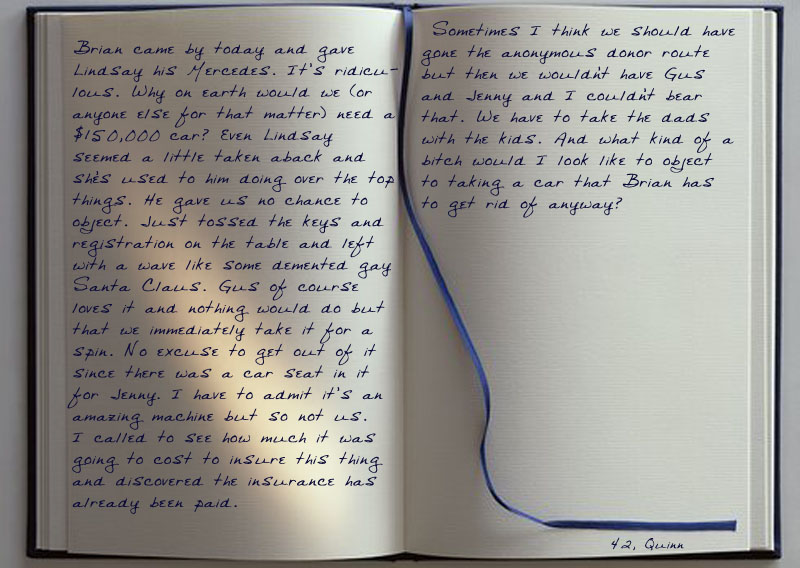 Brian came by today and gave
Lindsay his Mercedes. It's ridicu-
lous. Why on earth would we (or
anyone else for that matter) need a
$150,000 car? Even Lindsay
seemed a little taken aback and
she's used to him doing over the top
things. He gave us no chance to
object. Just tossed the keys and
registration on the table and left
with a wave like some demented gay
Santa Claus. Gus of course
loves it and nothing would do but
that we immediately take it for a
spin. No excuse to get out of it
since there was a car seat in it
for Jenny. I have to admit it's an
amazing machine but so not us.
I called to see how much it was
going to cost to insure this thing
and discovered the insurance has
already been paid.
Sometimes I think we should have
gone the anonymous donor route
but then we wouldn't have Gus
and Jenny and I couldn't bear
that. We have to take the dads
with the kids. And what kind of a
bitch would I look like to object
to taking a car that Brian has
to get rid of anyway?
42, Quinn